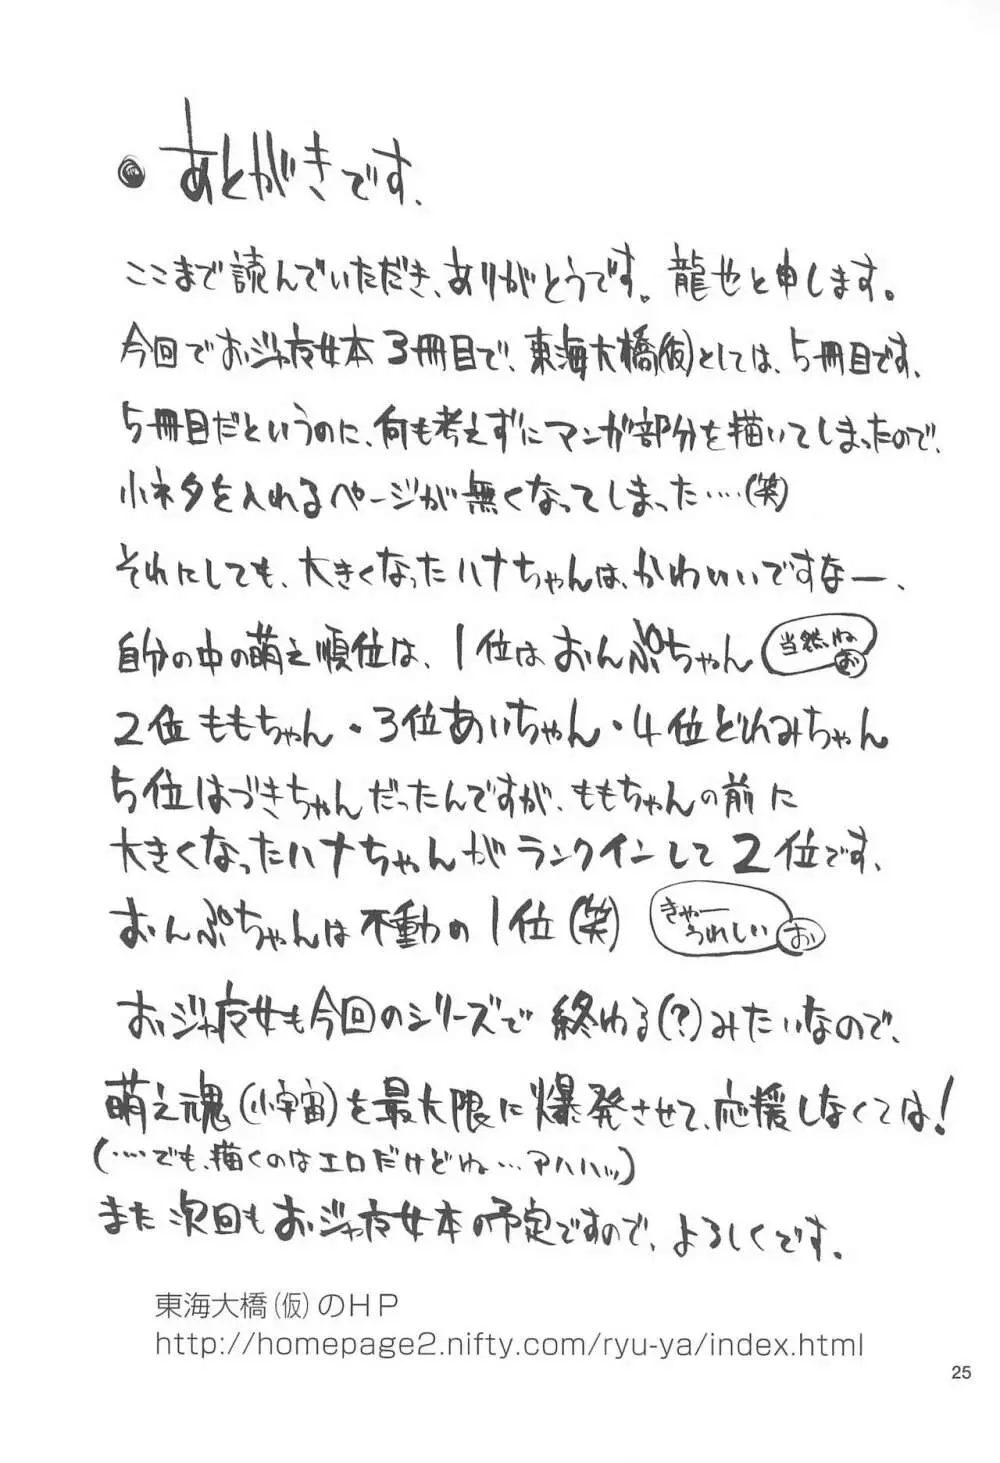 あとがきです、
ここまで読んでいただき、ありがとうです。龍也と申します。
今回でおジャ魔女本3冊目で、東海大橋(仮)としては、5冊目です、
5冊目だというのに、何も考えずにマンガ部分を描いてしまったので、
小ネタを入れるページが無くなってしまった……(笑)
それにしても、大きくなったハナちゃんは、かわいいですなー、
自分の中の萌え順位は、1位はおんぷちゃん
当然ね
お
2位ももちゃん・3位あいちゃん・4位どれみちゃん
5位はづきちゃんだったんですが、ももちゃんの前に
大きくなったハナちゃんがランクインして2位です、
おんぷちゃんは不動の1位(笑)
きゃー
うれしい
お
おジャ魔女も今回のシリーズで終わる(?)みたいなので、
萌え魂(小宇宙)を最大限に爆発させて、応援しなくては!
(……でも、描くのはエロだけどね…アハハッ)
また次回もおジャ魔女本の予定ですので、よろしくです。
東海大橋(仮)のHP
http://homepage2.nifty.com/ryu-ya/index.html
25